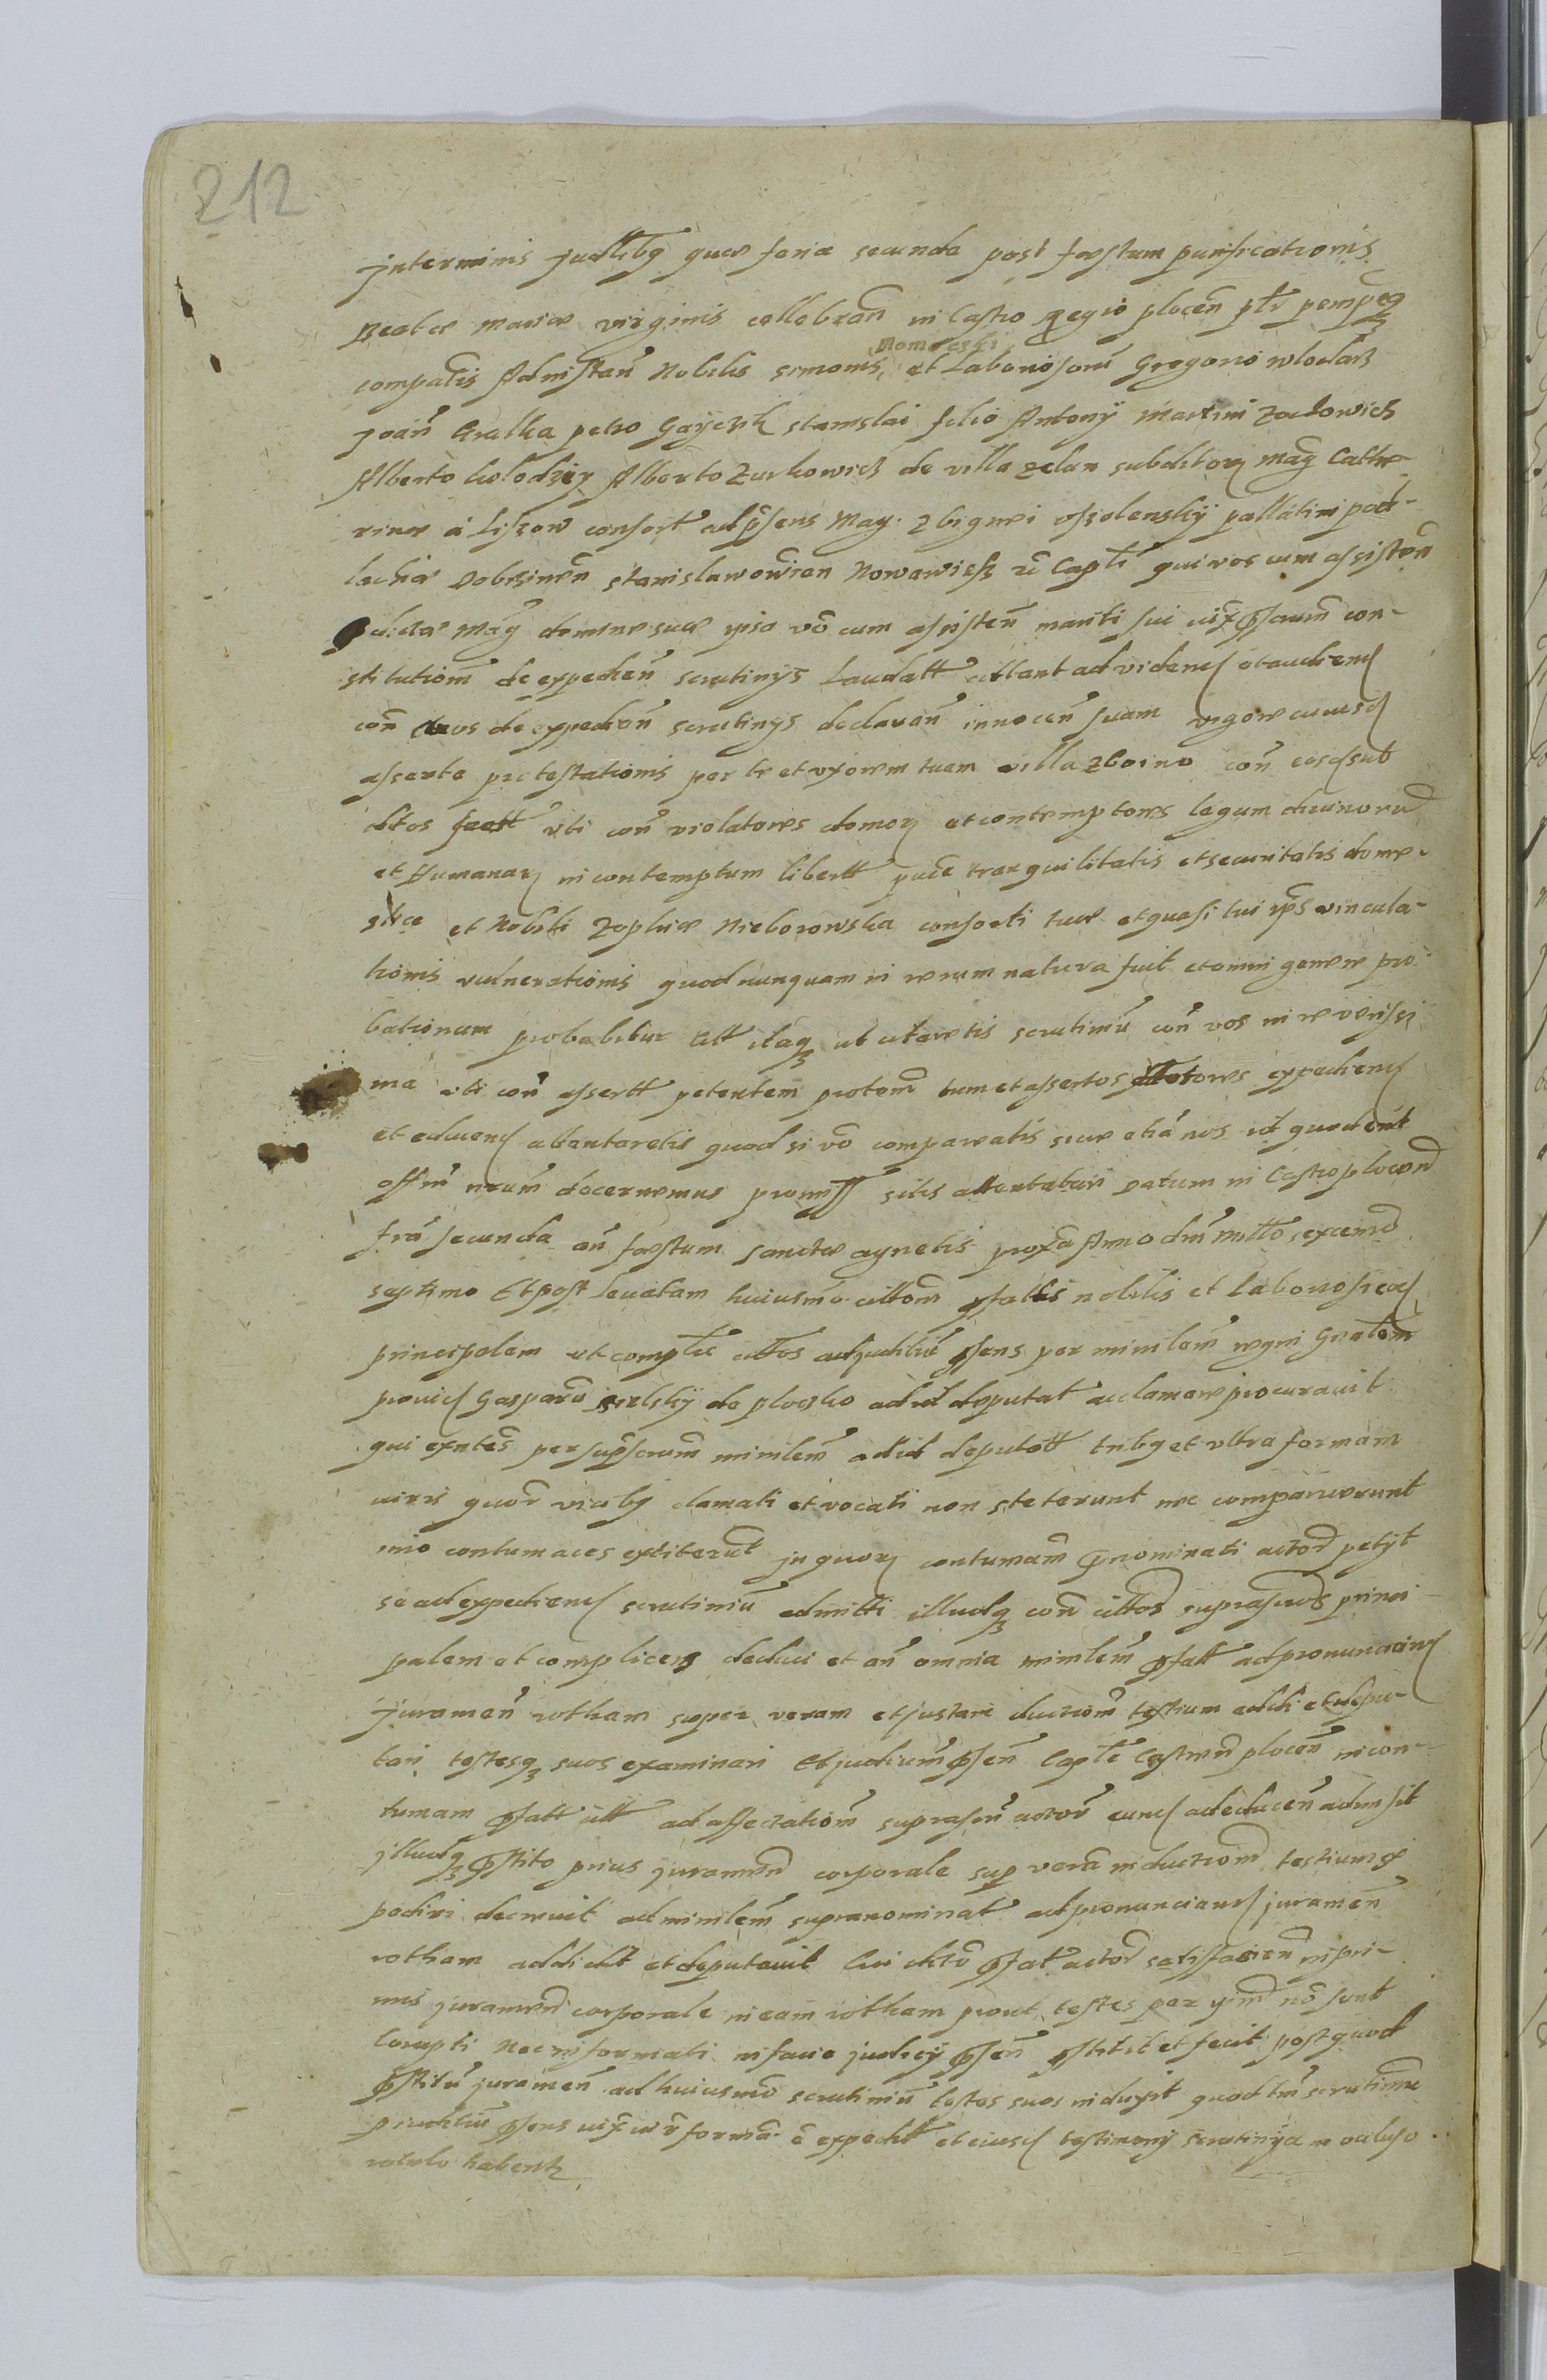 212
in terminis judlibq quae feria secunda post festum purificationis
Beatae Mariae virginis cellebran in Castro Regio plocen ptr perempq
comparis Ad nistan Nobilis Simonis et Laboriosorū Gregorio wlodarz
Joan Gralka petro Gayczik stanislai filio Antonÿ Martini Zadowicz
Alberto kolodziey Alberto Zurkowicz de villa zelun subditorū mag Cathe
rinae á liszow consort ad psens Mag. Zbignei ossolenskÿ pallatini pod-
lachiae Dobrinen Stanislawowien Nowawiess zc Capti qui vos cum assisten
dictae Mag dominae suae ipso vō cum assisten mariti sui iux pscrum con-
stitutiom de expedien scrutinÿs Laudatt cittant ad videnḍ et audienḍ
con eos de expedien scrutinÿs declaran innocen suam vigore cuiusḍ
assertae protestationis per te et uxorem tuam villa zboino con eosḍ sub
ditos factt uti con violatores domorū et contemptores legum divinorū
et humanarū in contemptum libertt pacē tranquilitatis et securitatis dome-
sticae et Nobili Zophiae Nieborowska consorti tuae et quasi tui ips vincula-
tionis vulnerationis quod nunquam in rerum natura fuit et omni genere pro-
bationum probabitur Citt itaq ut citaretis scrutiniū con vos in re verissi
ma uti con assertt petentem protem tum et assertos actores expedienḍ
et educenḍ attentaretis quod si vō compareatis sive etiā nos id quod erit
offm nrum decernemus promiss sitis attentaturi Datum in Castro plocen
fria secunda an festum sanctae agnetis prox̄a Anno dni millō sexcenō
septimo Et post levatam huiusmō cittom pfatis nobilis et laboriosi eosḍ
principalem et complic cittos ad judiciū psens per minilem regni Gnalem
provic Gasparū sielskÿ de plocko ad id deputat acclamare procuravit
qui exntes per supscrum minilem ad id deputatt tribq et ultra formam
iuris quor vicibq clamati et vocati non steterunt nec comparuerunt
imo contumaces extiterūt in quorū contumam pnominati actor petÿt
se ad expedienḍ scrutiniū admitti illudq con cittos suprascros princi-
palem et complices deduci et an omnia minilem pfatt ad pronunciānḍ
juramen rotham super veram et justam ductiom testium addi et depu-
tari testesq suos examinari Et judiciū psen Capti Castren plocen in con-
tumam pfatt citt ad affectatiom suprascri actor eunḍ ad educen admisit
illudq pstito prius jurameno corporale sup verā inductiom testium ex
pediri decrevit ad minilem supranominat ad pronunciānḍ juramen
rotham addidit et deputavit Cui dictō pfat actor satisfacien in pri-
mis jurameno corporale in eam rotham prout testes per ipm nō sunt
Corupti Nec informati in facie judicÿ psen pstitit et fecit post quod
pstitū juramen ad huiusmō scrutiniū testes suos induxit quod tm scrutiniū
p judiciū psens iux iur formā ē expedit et eiusḍ testimonÿ scrutinÿ a in ocluso
rotulo habentr